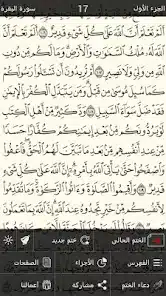 الجزء الأول 17 سورة البقرة
أَلَمْ تَعْلَمْ أَنَّ ٱللَّهَ عَلَىٰ كُلِّ شَىْءٍ قَدِيرٌ ١٠٦ أَلَمْ تَعْلَمْ أَنَّ
ٱللَّهَ لَهُۥ مُلْكُ ٱلسَّمَٰوَٰتِ وَٱلْأَرْضِ ۗ وَمَا لَكُم مِّن دُونِ
ٱللَّهِ مِن وَلِىٍّ وَلَا نَصِيرٍ ١٠٧ أَمْ تُرِيدُونَ أَن تَسْـَٔلُوا۟ رَسُولَكُمْ
كَمَا سُئِلَ مُوسَىٰ مِن قَبْلُ ۗ وَمَن يَتَبَدَّلِ ٱلْكُفْرَ بِٱلْإِيمَٰنِ
فَقَدْ ضَلَّ سَوَآءَ ٱلسَّبِيلِ ١٠٨ وَدَّ كَثِيرٌ مِّنْ أَهْلِ ٱلْكِتَٰبِ
لَوْ يَرُدُّونَكُم مِّنۢ بَعْدِ إِيمَٰنِكُمْ كُفَّارًا حَسَدًا مِّنْ عِندِ
أَنفُسِهِم مِّنۢ بَعْدِ مَا تَبَيَّنَ لَهُمُ ٱلْحَقُّ ۖ فَٱعْفُوا۟ وَٱصْفَحُوا۟
حَتَّىٰ يَأْتِىَ ٱللَّهُ بِأَمْرِهِۦٓ ۗ إِنَّ ٱللَّهَ عَلَىٰ كُلِّ شَىْءٍ قَدِيرٌ ١٠٩
وَأَقِيمُوا۟ ٱلصَّلَوٰةَ وَءَاتُوا۟ ٱلزَّكَوٰةَ ۚ وَمَا تُقَدِّمُوا۟
لِأَنفُسِكُم مِّنْ خَيْرٍ تَجِدُوهُ عِندَ ٱللَّهِ ۗ إِنَّ ٱللَّهَ بِمَا تَعْمَلُونَ
الختم الحالي ختم جديد
الفهرس الأجزاء الصفحات
دعاء الختم مشاركة أعمالنا